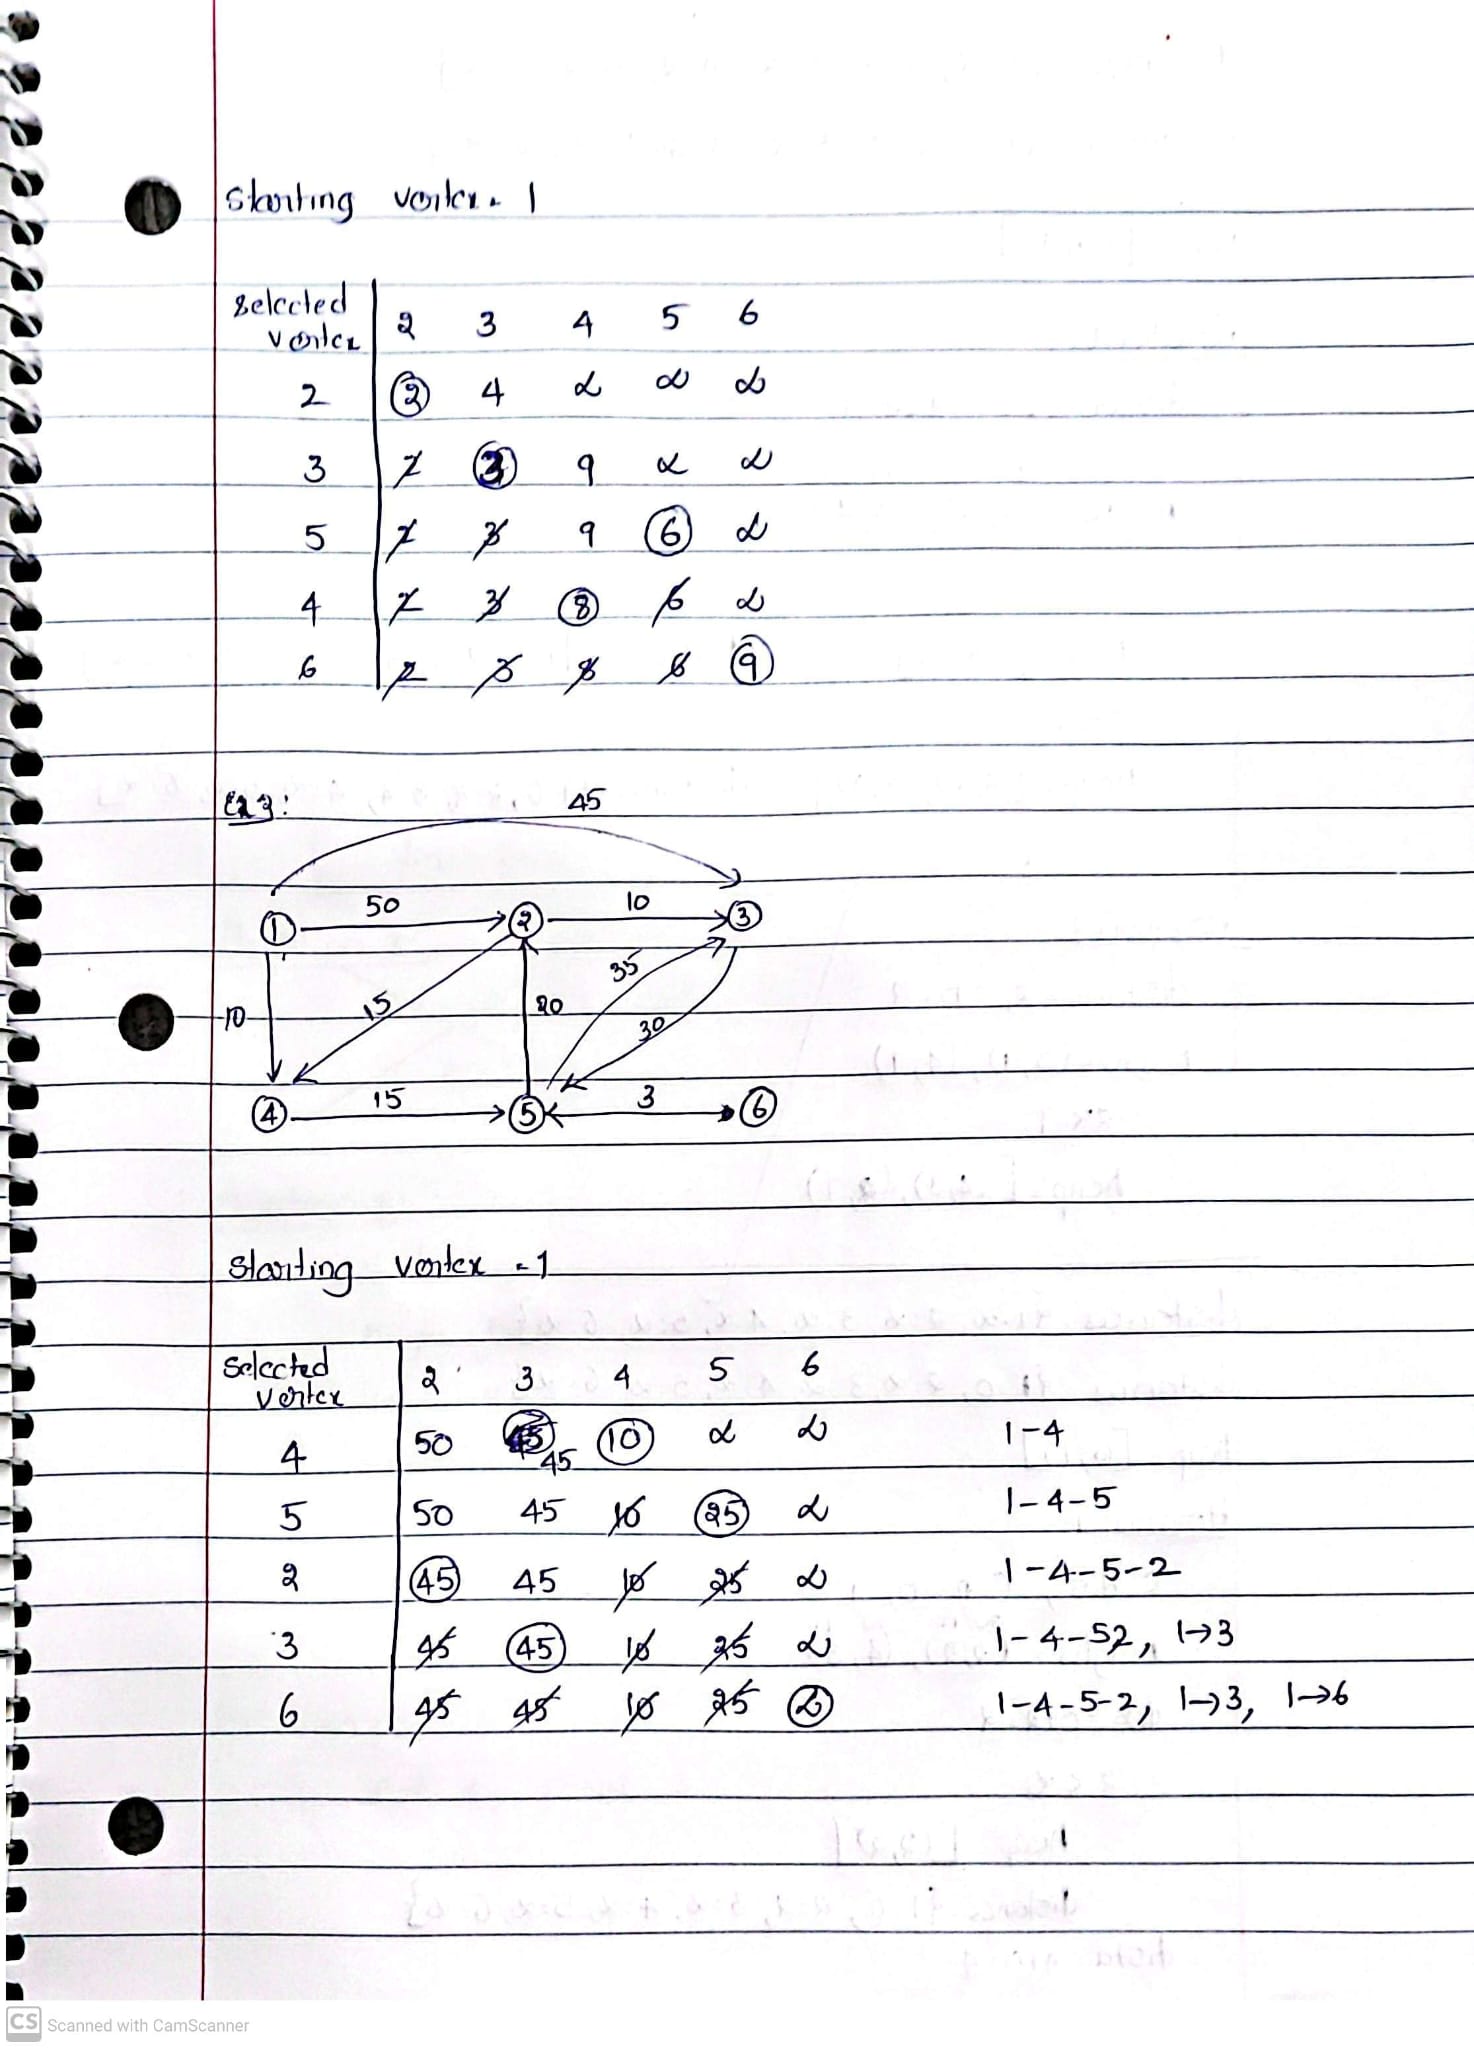 Starting vertex = 1
Selected vertex 2 3 4 5 6
2 2 4 ∞ ∞ ∞
3 2 3 9 ∞ ∞
5 2 3 9 6 ∞
4 2 3 8 6 ∞
6 2 3 8 6 9
Ex 3:
45
50 10
1 2 3
35
10 15 20
30
15 3
4 5 6
Starting vertex = 1
Selected vertex 2 3 4 5 6
4 50 45 10 ∞ ∞ 1-4
5 50 45 10 25 ∞ 1-4-5
2 45 45 10 25 ∞ 1-4-5-2
3 45 45 10 25 ∞ 1-4-52, 1→3
6 45 45 10 25 ∞ 1-4-5-2, 1→3, 1→6
CS Scanned with CamScanner